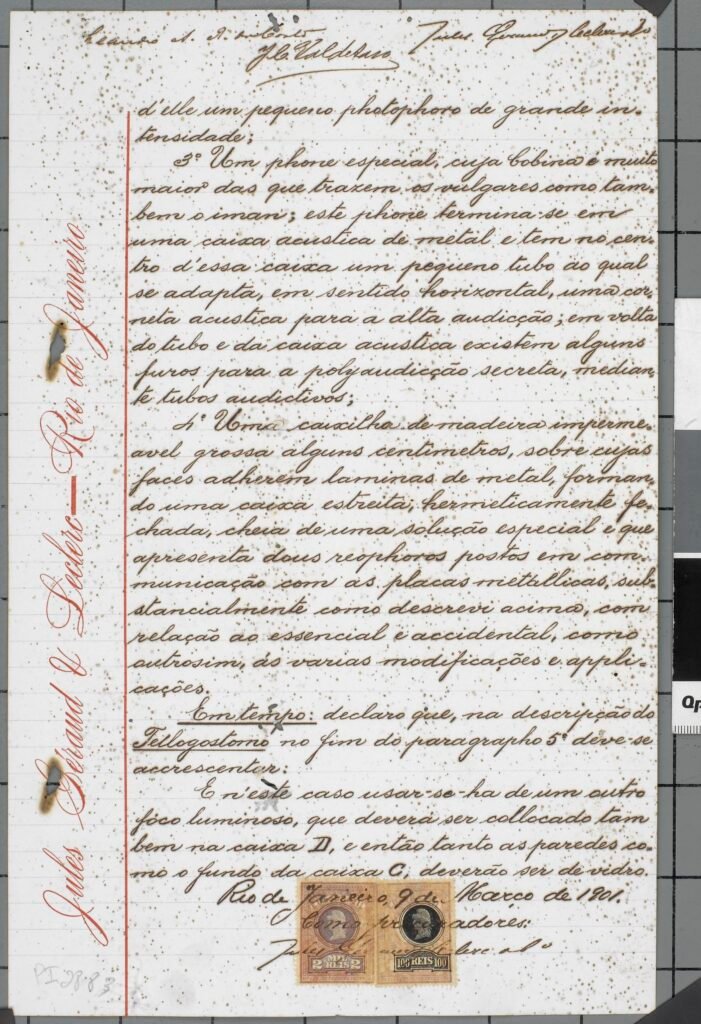 J. C. Valdetaro
Jules Geraud & Leclerc—Rio de Janeiro
d'elle um pequeno photophoro de grande in-
tensidade;
3º Um phone especial, cuja bobina é muito
maior das que trazem os vulgares como tam-
bem o iman; este phone termina-se em
uma caixa acustica de metal e tem no cen-
tro d'essa caixa um pequeno tubo ao qual
se adapta, em sentido horizontal, uma cor-
neta acustica para a alta audicção; em volta
do tubo e da caixa acustica existem alguns
furos para a polyaudicção secreta, median-
te tubos audictivos;
4º Uma caixilha de madeira imperme-
avel grossa alguns centimetros, sobre cujas
faces adherem laminas de metal, forman-
do uma caixa estreita, hermeticamente fe-
chada, cheia de uma solução especial e que
apresenta dous reophoros postos em com-
municação com as placas metallicas, sub-
stancialmente como descrevi acima, com
relação ao essencial e accidental, como
outrosim, ás varias modificações e appli-
cações.
Em tempo: declaro que, na descripção do
Tellogostomo no fim do paragrapho 5º deve-se
accrescentar:
E n'este caso usar-se-ha de um outro
fóco luminoso, que deverá ser collocado tam
bem na caixa D, e então tanto as paredes co-
mo o fundo da caixa C, deverão ser de vidro.
Rio de Janeiro, 9 de Março de 1901.
Como procuradores:
2 MIL REIS 2
100 REIS 100
PI 2883